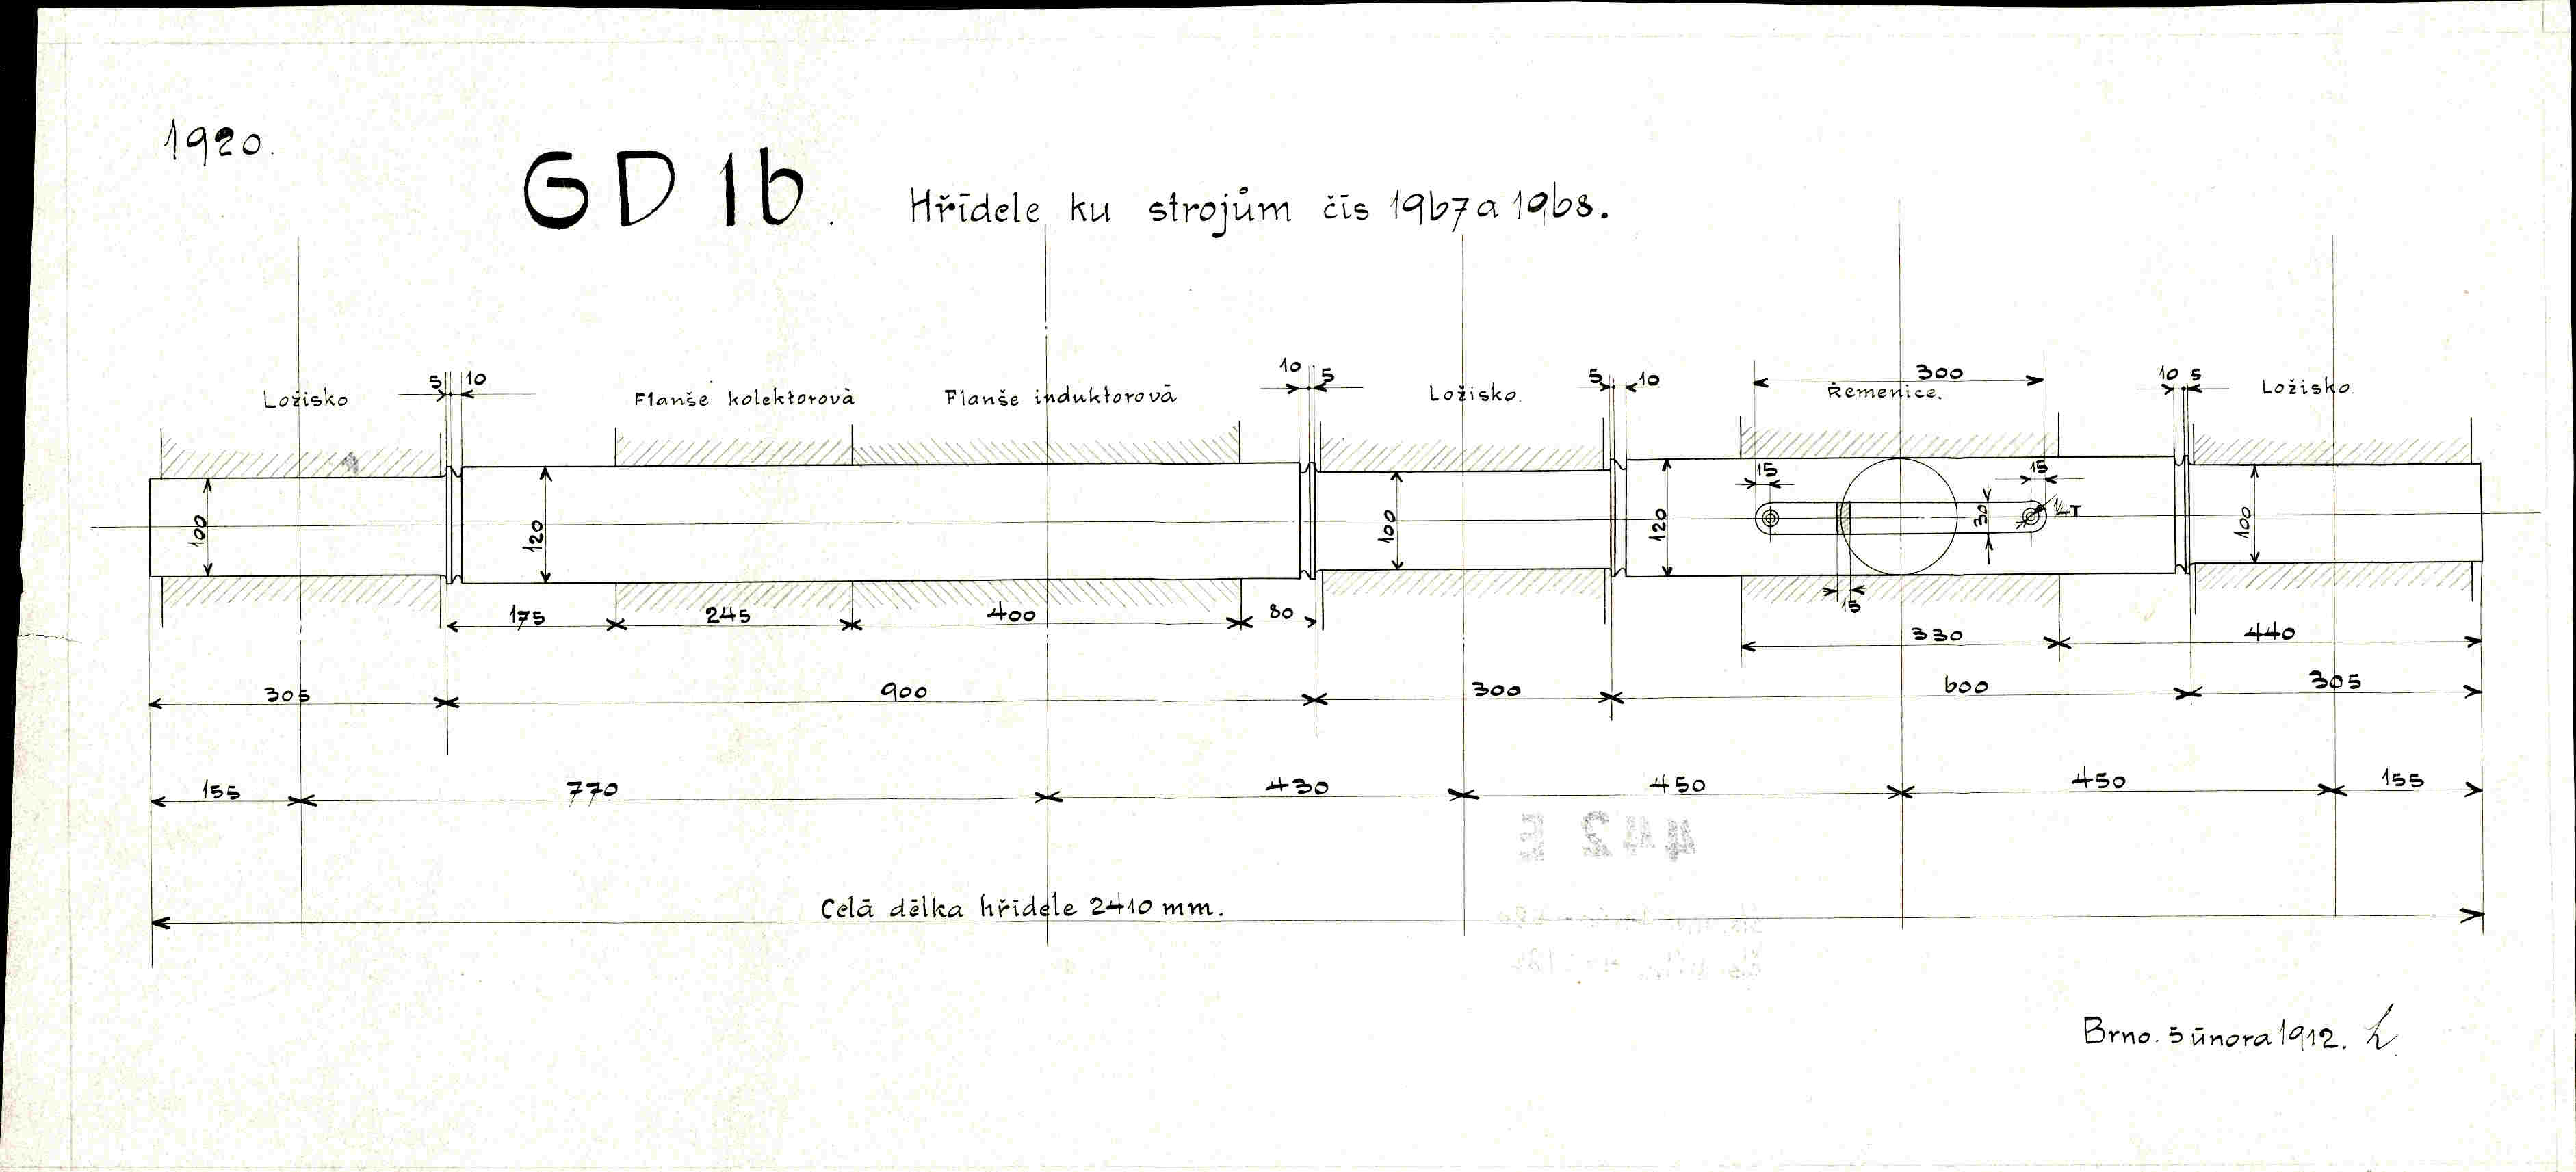 1920.
GD 16.
Hřídele ku strojům čís 1967 a 1968.
Ložisko
5 10
Flanše kolektorová
Flanše induktorová
10 5
Ložisko.
5 10
300
Řemenice.
10 5
Ložisko.
100
120
100
120
15
15
30
1/4 T
15
100
175 245 400 80
330 440
305 900 300 600 305
155 770 430 450 450 155
442 E
Celá délka hřídele 2410 mm.
Brno. 5 února 1912.